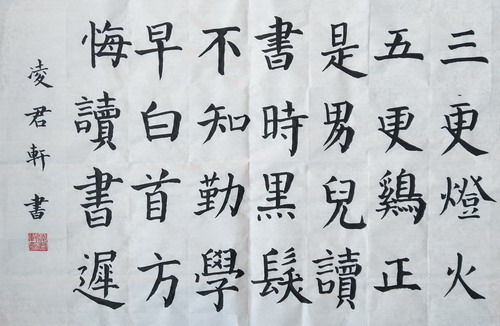 三更燈火
五更鷄正
是男兒讀
書時黑髮
不知勤學
早白首方
悔讀書遲
凌君軒書